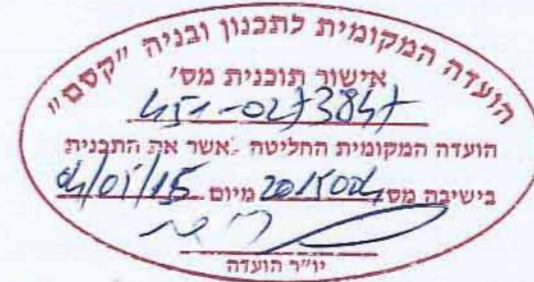 הועדה המקומית לתכנון ובניה "קסם"
אישור תוכנית מס'
451-0273847
הועדה המקומית החליטה לאשר את התכנית
בישיבה מס' 2015004 מיום 04/05/15
יו"ר הועדה